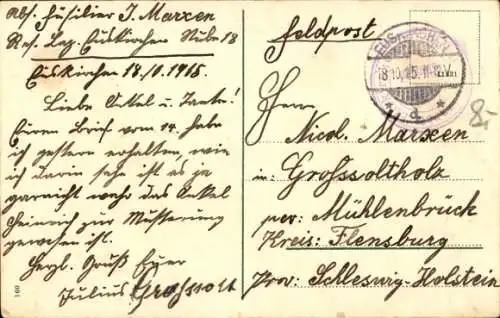 Abs. Füsilier J. Marxen
Res. Laz. Euskirchen Stube 18
Euskirchen 18.10.1915.
Liebe Onkel u. Tante!
Euren Brief vom 14. habe
ich gestern erhalten, wie
ich darin sehe ist es ja
garnicht wahr das Onkel
Heinrich zur Musterung
gewesen ist.
Herzl. Gruß Euer
Julius
160
Feldpost
18.10.15
* d. *
8.-
Herrn
Nicol. Marxen
in: Grosssoltholz
per: Mühlenbrück
Kreis: Flensburg
Prov: Schleswig-Holstein